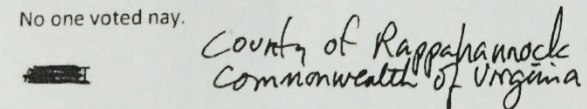 No one voted nay.
County of Rappahannock
Commonwealth of Virginia